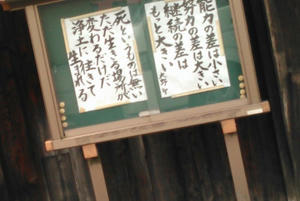 能力の差は小さい
努力の差は大きい
継続の差は
もっと大きい
死というものは無い
ただ生きる場所が
変わるだけだ
浄土に往きて
生れる